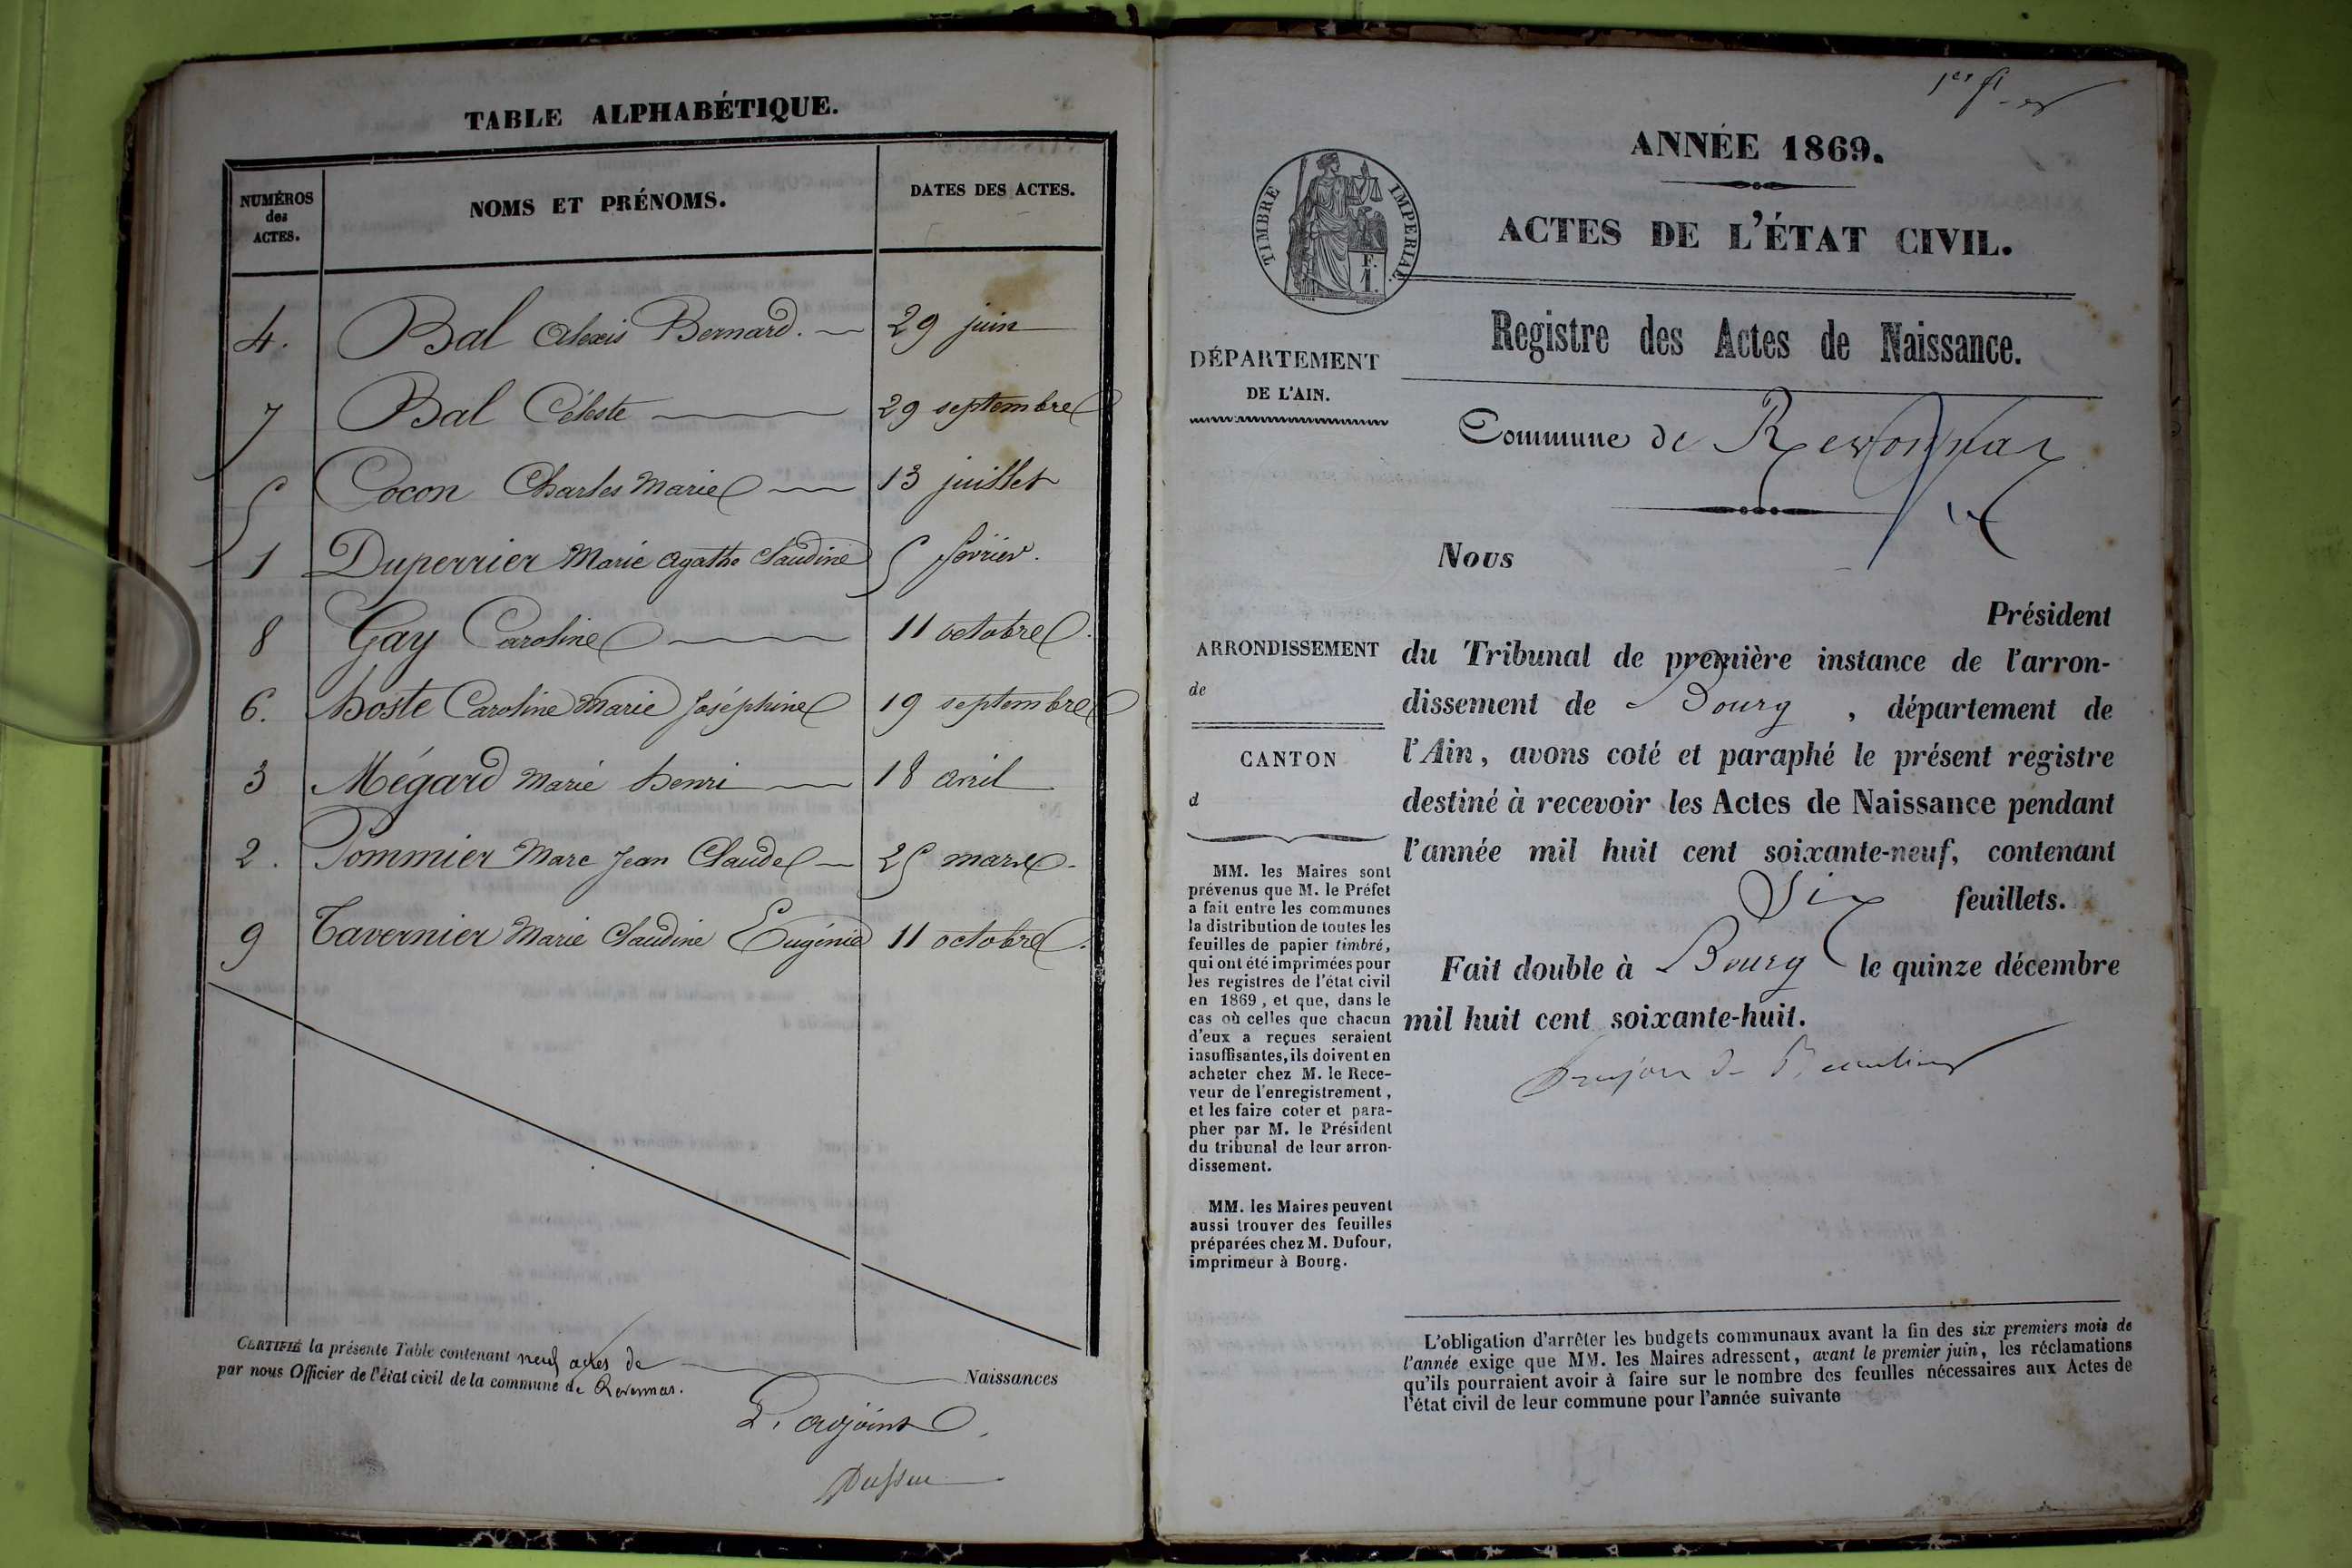 TABLE ALPHABÉTIQUE.
NUMÉROS
des
ACTES.
NOMS ET PRÉNOMS.
DATES DES ACTES.
4. Bal Alexis Bernard. 29 juin
7 Bal Céleste 29 septembre
5 Cocon Charles Marie 13 juillet
1 Duperrier Marie Agathe Claudine 5 février.
8 Gay Caroline 11 octobre.
6. hoste Caroline Marie Joséphine 19 septembre
3 Mégard Marie henri 18 avril
2. Pommier Marc Jean Claude 25 mars
9 Tavernier Marie Claudine Eugénie 11 octobre.
CERTIFIÉ la présente Table contenant neuf actes de Naissances
par nous Officier de l'état civil de la commune de Revonnas.
L'adjoint
ANNÉE 1869.
TIMBRE IMPERIAL
F.
1.
ACTES DE L'ÉTAT CIVIL.
Registre des Actes de Naissance.
DÉPARTEMENT
DE L'AIN.
Commune de Revonnas
Nous
Président
ARRONDISSEMENT
de
CANTON
d
du Tribunal de première instance de l'arron-
dissement de Bourg , département de
l'Ain, avons coté et paraphé le présent registre
destiné à recevoir les Actes de Naissance pendant
l'année mil huit cent soixante-neuf, contenant
Six feuillets.
Fait double à Bourg le quinze décembre
mil huit cent soixante-huit.
MM. les Maires sont
prévenus que M. le Préfet
a fait entre les communes
la distribution de toutes les
feuilles de papier timbré,
qui ont été imprimées pour
les registres de l'état civil
en 1869, et que, dans le
cas où celles que chacun
d'eux a reçues seraient
insuffisantes, ils doivent en
acheter chez M. le Rece-
veur de l'enregistrement,
et les faire coter et para-
pher par M. le Président
du tribunal de leur arron-
dissement.
MM. les Maires peuvent
aussi trouver des feuilles
préparées chez M. Dufour,
imprimeur à Bourg.
L'obligation d'arrêter les budgets communaux avant la fin des six premiers mois de
l'année exige que MM. les Maires adressent, avant le premier juin, les réclamations
qu'ils pourraient avoir à faire sur le nombre des feuilles nécessaires aux Actes de
l'état civil de leur commune pour l'année suivante